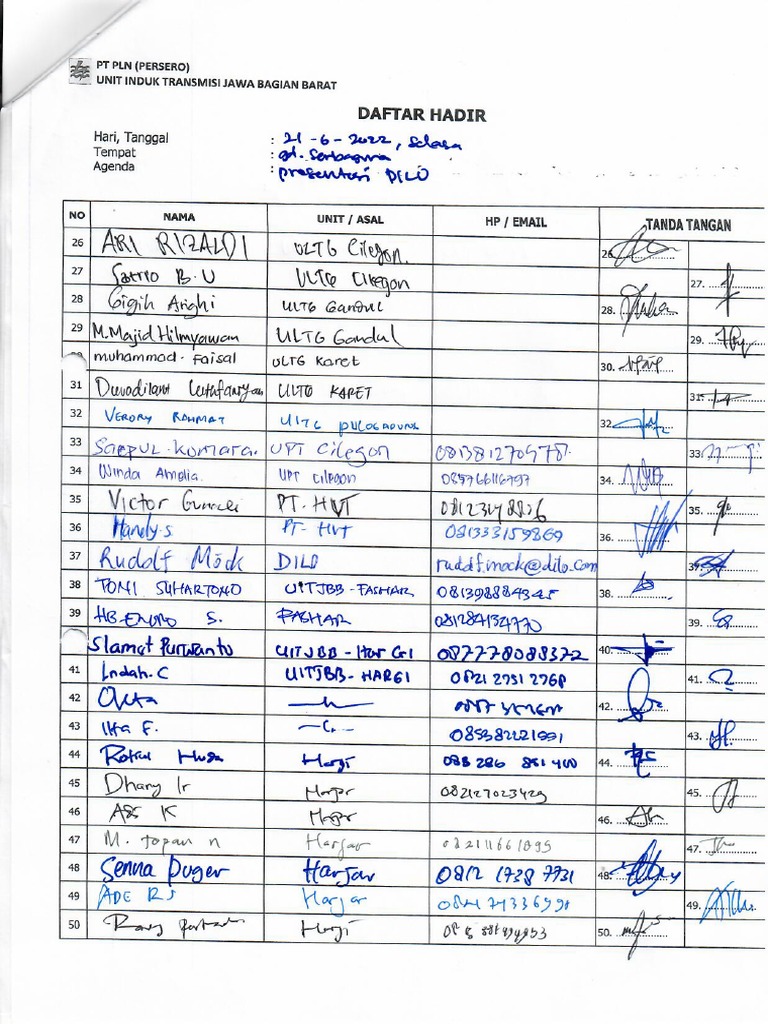 PT PLN (PERSERO)
UNIT INDUK TRANSMISI JAWA BAGIAN BARAT
DAFTAR HADIR
Hari, Tanggal : 21-6-2022, Selasa
Tempat : gd. Serbaguna
Agenda : presentasi DILO
NO NAMA UNIT / ASAL HP / EMAIL TANDA TANGAN
26 ARI RIZALDI ULTG Cilegon. 26.
27 Satrio B.U ULTG Cilegon 27.
28 Gigih Arighi ULTG Gandul 28.
29 M.Majid Hilmyawan ULTG Gandul 29.
muhammad. Faisal ULTG Karet 30.
31 ULTG KARET 31.
32 VERORY RAHMAT ULTG PULOGADUNG 32.
33 Saepul.kumara. UPT Cilegon 33.
34 Winda Amelia. UPT Cilegon 085766116797 34.
35 Victor PT. HVT 35.
36 Handy.S PT- HVT 081333159869 36.
37 Rudolf Möck DILO rudolf.mock@dilo.com 37.
38 TONI SUHARTONO UITJBB-FASHAR 081398884345 38.
39 S. FASHAR 081284134770 39.
Slamat Purwanto UITJBB - Har GI 087778088372 40.
41 Indah.C UITJBB-HARGI 0821 2751 2768 41.
42 Okta 42.
43 Ika F. 43.
44 Hargi 44.
45 Dhany Ir 082127023429 45.
46 K 46.
47 M. topan n Harjar 47.
48 Senna Puger Harjar 0812 1738 7731 48.
49 ADE RS Harjar 49.
50 Hargi 50.